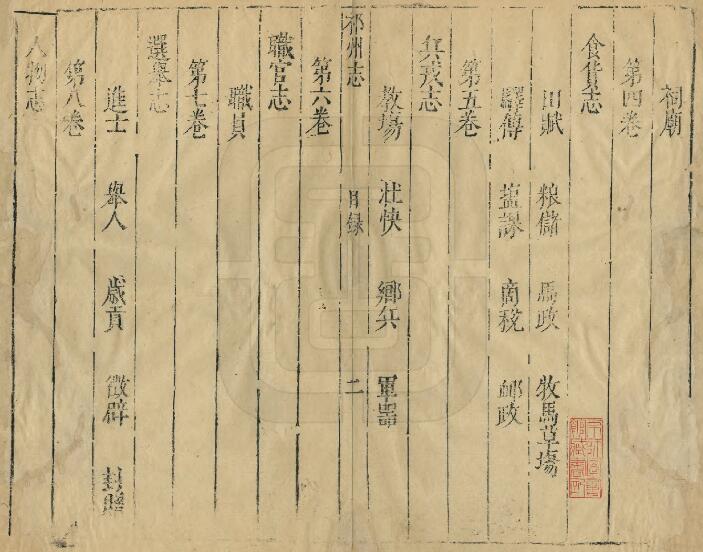 祠廟
第四卷
食貨志
田賦 粮儲 馬政 牧馬草塲
驛傳 塩課 商稅 郵政
第五卷
兵戎志
教塲 壮快 鄉兵 軍器
祁州志 目録 二
第六卷
職官志
職員
第七卷
選舉志
進士 舉人 歲貢 徵辟 封贈
第八卷
人物志